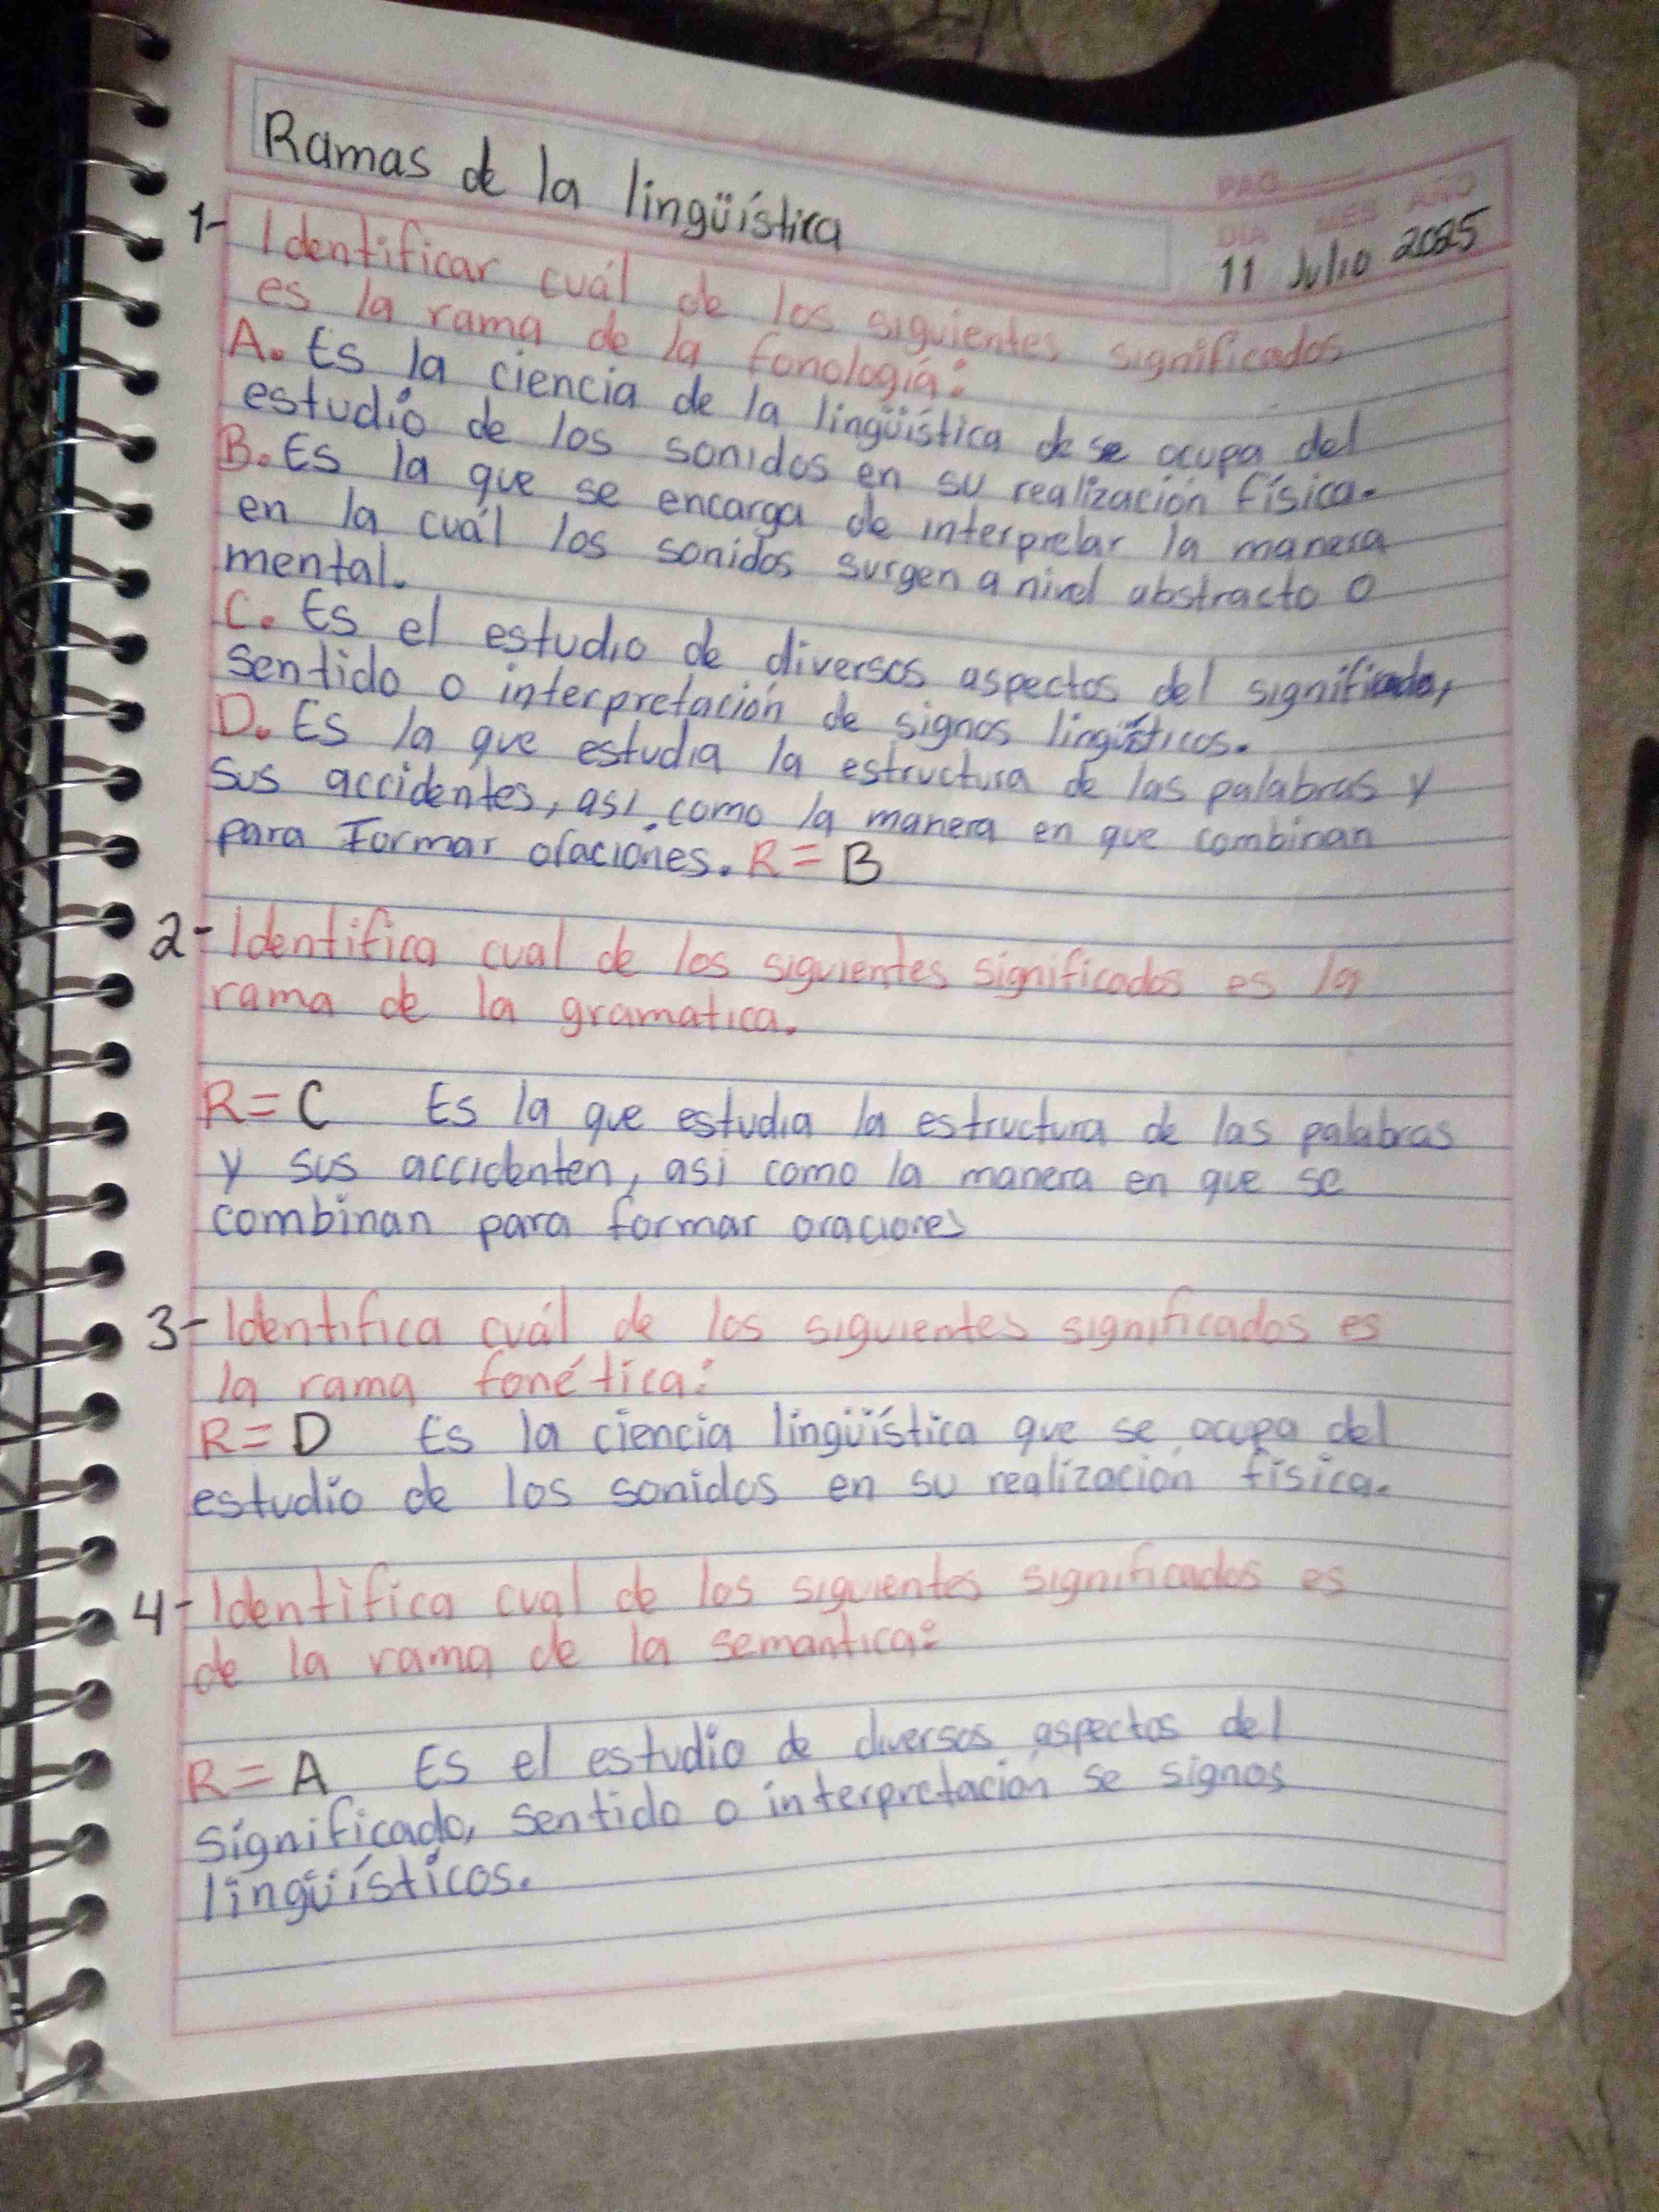 Ramas de la lingüística
PAG
DIA MES AÑO
11 Julio 2025
1- Identificar cuál de los siguientes significados
es la rama de la fonología:
A. Es la ciencia de la lingüística de se ocupa del
estudio de los sonidos en su realización física.
B. Es la que se encarga de interpretar la manera
en la cuál los sonidos surgen a nivel abstracto o
mental.
C. Es el estudio de diversos aspectos del significado,
sentido o interpretación de signos lingüísticos.
D. Es la que estudia la estructura de las palabras y
sus accidentes, así como la manera en que combinan
para Formar oraciones. R= B
2- Identifica cual de los siguientes significados es la
rama de la gramatica.
R= C Es la que estudia la estructura de las palabras
y sus accidenten, asi como la manera en que se
combinan para formar oraciones
3- Identifica cuál de los siguientes significados es
la rama fonética:
R= D Es la ciencia lingüística que se ocupa del
estudio de los sonidos en su realización física.
4- Identifica cual de los siguientes significados es
de la rama de la semantica:
R= A Es el estudio de diversos aspectos del
significado, sentido o interpretación se signos
lingüísticos.